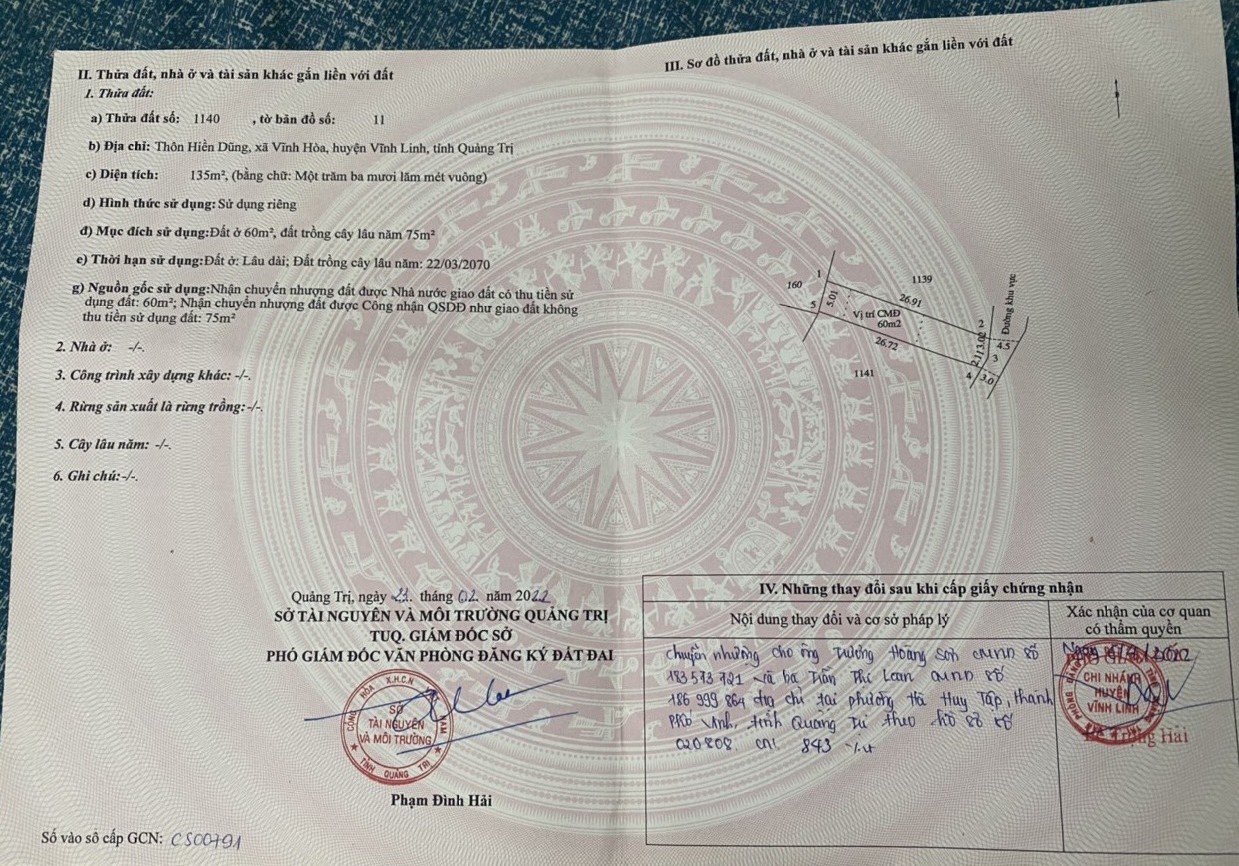 II. Thửa đất, nhà ở và tài sản khác gắn liền với đất
1. Thửa đất:
a) Thửa đất số: 1140 , tờ bản đồ số: 11
b) Địa chỉ: Thôn Hiền Dũng, xã Vĩnh Hòa, huyện Vĩnh Linh, tỉnh Quảng Trị
c) Diện tích: 135m², (bằng chữ: Một trăm ba mươi lăm mét vuông)
d) Hình thức sử dụng: Sử dụng riêng
đ) Mục đích sử dụng:Đất ở 60m², đất trồng cây lâu năm 75m²
e) Thời hạn sử dụng:Đất ở: Lâu dài; Đất trồng cây lâu năm: 22/03/2070
g) Nguồn gốc sử dụng:Nhận chuyển nhượng đất được Nhà nước giao đất có thu tiền sử
dụng đất: 60m²; Nhận chuyển nhượng đất được Công nhận QSDĐ như giao đất không
thu tiền sử dụng đất: 75m²
2. Nhà ở: -/-.
3. Công trình xây dựng khác: -/-.
4. Rừng sản xuất là rừng trồng:-/-.
5. Cây lâu năm: -/-.
6. Ghi chú:-/-.
Quảng Trị, ngày 21. tháng 02. năm 2022
SỞ TÀI NGUYÊN VÀ MÔI TRƯỜNG QUẢNG TRỊ
TUQ. GIÁM ĐỐC SỞ
PHÓ GIÁM ĐỐC VĂN PHÒNG ĐĂNG KÝ ĐẤT ĐAI
CỘNG HÒA X.H.C.N VIỆT NAM
SỞ
TÀI NGUYÊN
VÀ MÔI TRƯỜNG
TỈNH QUẢNG TRỊ
Phạm Đình Hải
Số vào sổ cấp GCN: CS00791
III. Sơ đồ thửa đất, nhà ở và tài sản khác gắn liền với đất
1
160
1139
5.01
26.91
Đường khu vực
5
Vị trí CMĐ
60m2
2
26.72
3.02
4.5
2.11
3
1141
4
3.0
IV. Những thay đổi sau khi cấp giấy chứng nhận
Nội dung thay đổi và cơ sở pháp lý
Xác nhận của cơ quan
có thẩm quyền
Chuyển nhượng cho ông Trương Hoàng Sơn CMND số
183573721 và bà Trần Thị Loan CMND số
186 999 864 địa chỉ tại phường Hà Huy Tập, thành
phố Vinh, tỉnh theo hồ sơ số
020808. CN. 843
Ngày
CHI NHÁNH
HUYỆN
VĨNH LINH
Hải